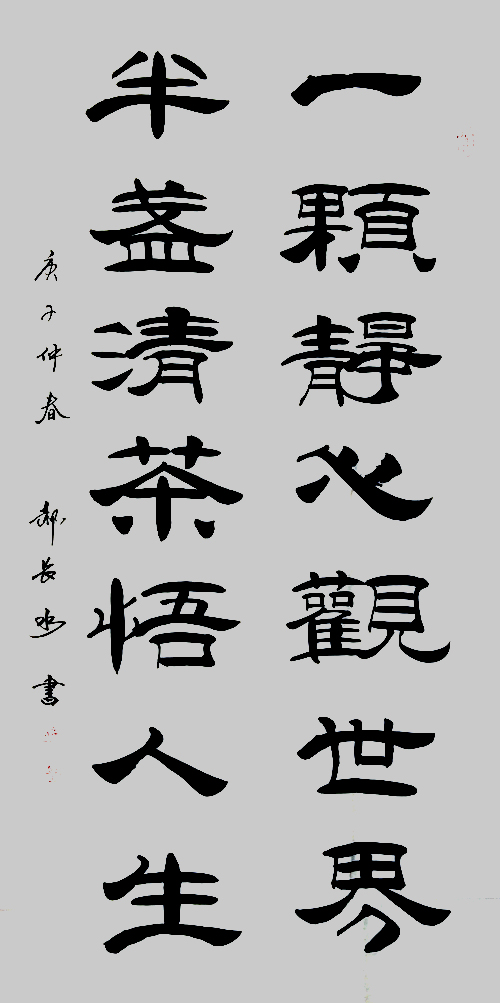 一顆靜心觀世界
半盞清茶悟人生
庚子仲春 郝長水書